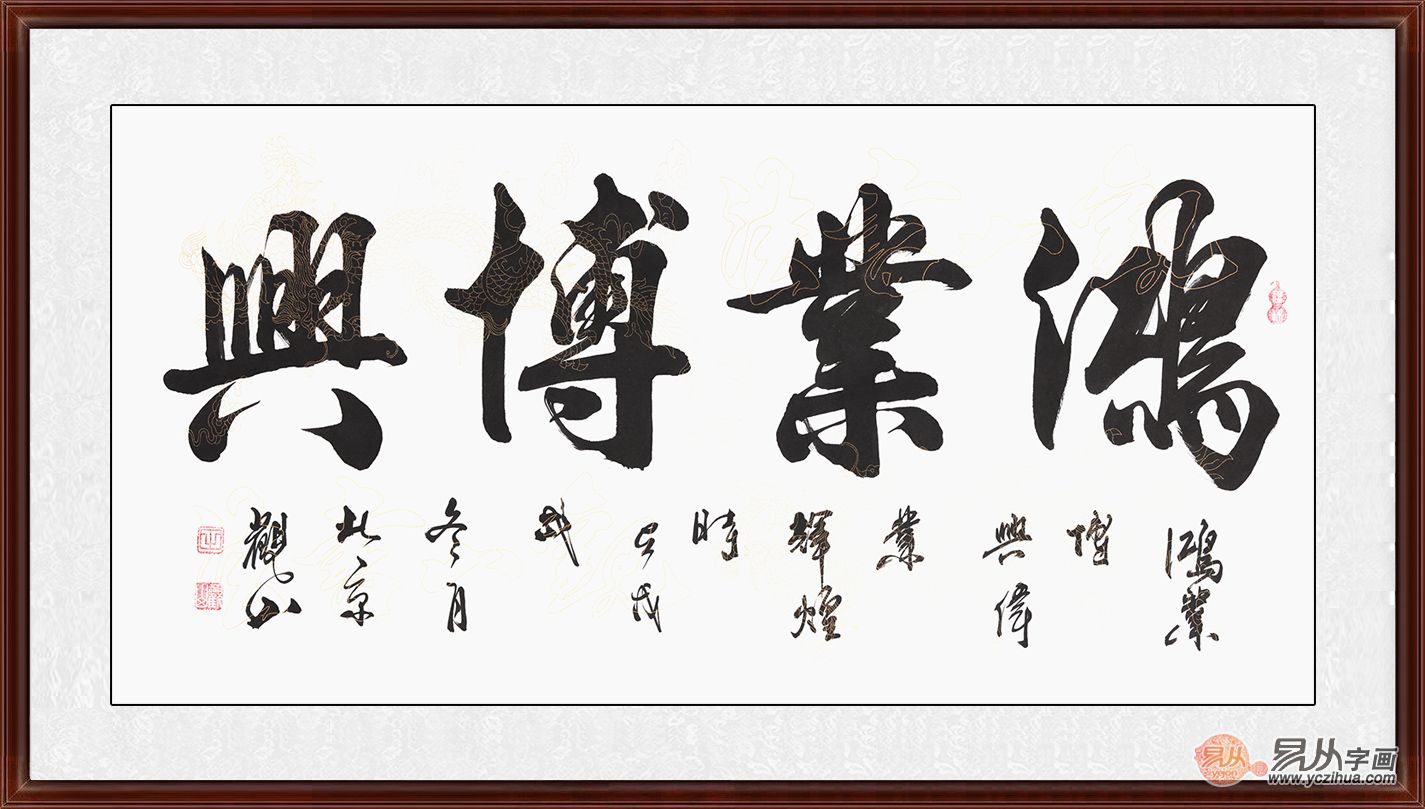 鴻業博興
鴻業
博
興偉
業
輝煌
時
戊戌
年
冬月
北京
觀山
易从
易从字画
www.yczihua.com